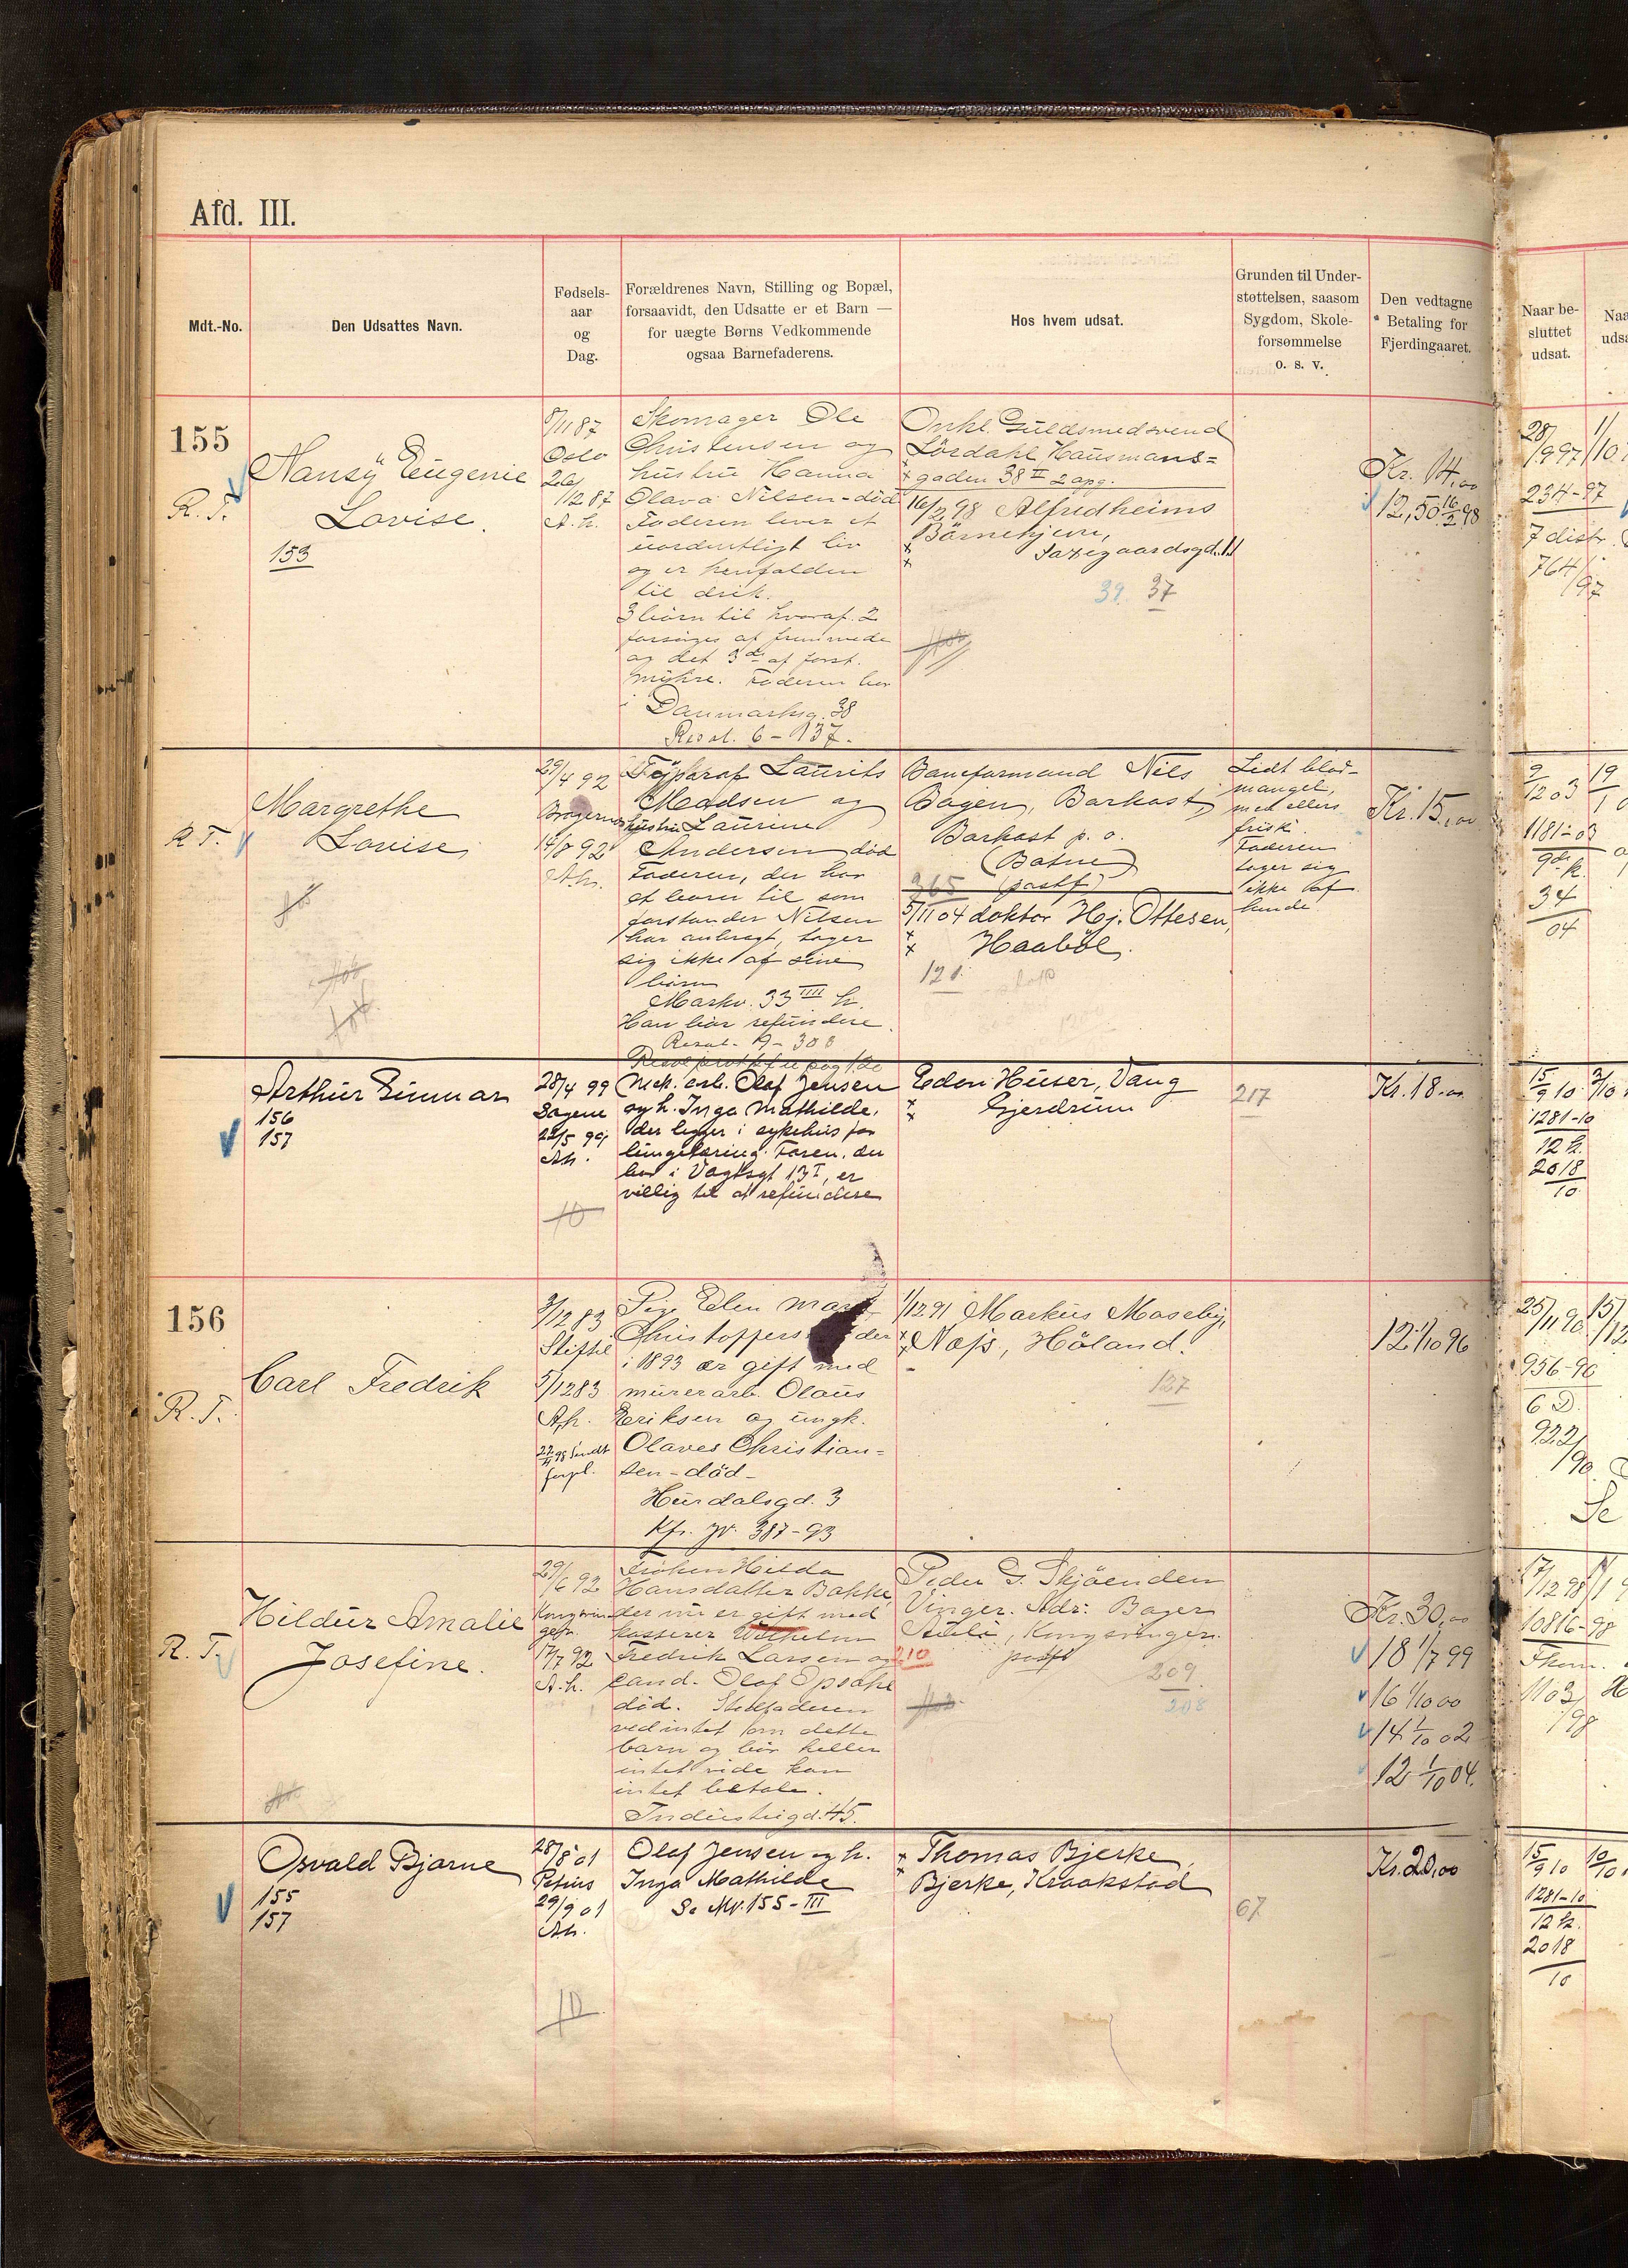 Afd. III.
Mdt.-No.
Den Udsattes Navn.
Fødsels-
aar
og
Dag.
Forældrenes Navn, Stilling og Bopæl,
forsaavidt, den Udsatte er et Barn —
for uægte Børns Vedkommende
ogsaa Barnefaderens.
Hos hvem udsat.
Grunden til Under-
støttelsen, saasom
Sygdom, Skole-
forsømmelse
o. s. v.
Den vedtagne
Betaling for
Fjerdingaaret.
Naar be-
sluttet
udsat.
155
R. T.
Nansy Eugenie
Lovise.
153
8/11 87
Oslo
1/12 87
A. h.
Skomager Ole
Christensen og
hustru Hanna
Olava Nilsen - död
Faderen lever et
uordentligt liv
og er henfalden
til drik.
3 börn til hvoraf 2
forsörges af fremmede
og det 3de af forst.
Myhre. Faderen bor
i Danmarksg. 38
Resol. 6 - 137.
Onkl. Guldsmedsvend
Lördahl, Hausmans=
gaden 38 II 2 opg.
16/2 98 Alfredheims
Börnehjem,
Saxegaardsgd. 11
39. 37
Kr. 14,00
12,50 16/2 98
28/9 97
234-97
7 distr.
764/97
R. T.
Margrethe
Lovise
29/4 92
Bragernes
14/8 92
A. h.
Typograf Laurits
Madsen og
hustru Laurine
Andersen död
Faderen, der har
et barn til som
forstander Nilsen
har anbragt, tager
sig ikke af sine
börn
Markv. 33 IIII h.
Han bör refundere.
Resol. 9 - 308
Baneformand Nils
Bagen, Barkost
Barkost p. o.
(Botne)
(postf)
365
5/11 04 doktor Hj. Ottesen,
Haaböl.
121.
Lidt blod-
mangel,
men ellers
frisk.
Faderen
tager sig
ikke af
hende.
Kr. 15,00
9/12 03
1181-03
9de k.
34
04
Arthur Gunnar
156
157
28/4 99
Sagene
22/5 99
Ah.
Mek. arb. Olaf Jensen
og h. Inga Mathilde,
der ligger i sykehus for
lungetæring. Faren, der
bor i Vogtsgt 13 I, er
villig til at refundere
Edon Huser, Vang
Gjerdrum
217
Kr. 18.00
15/9 10
1281-10
12 k.
2018
10.
156
R. T.
Carl Fredrik
3/12 83
Stiftel
5/12 83
A. h.
Pige Elen
der
i 1893 er gift med
murerarb. Olaus
Eriksen og ungk.
Olaves Christian=
sen - död -
Hurdalsgd. 3
Kfr. jr. 387-93
1/12 91 Markus Moseby,
Næs, Höland.
127
12 1/10 96
25/11 90
956-90
6 D.
922/90
R. T.
Hildur Amalie
Josefine.
29/6 92
17/7 92
A. h.
Fröken Hilda
Hansdatter Bakke,
der nu er gift med
kasserer Wilhelm
Fredrik Larsen og
cand. Olaf Opsahl
död. Stedfaderen
ved intet om dette
barn og bör heller
intet vide kan
intet betale.
Industrigd. 45.
Peder G. Skjöenden
Vinger. Adr. Bager
Kongsvinger.
postf
210
209
208
Kr. 30,00
18 1/7 99
16 1/10 00
14 1/10 02
12 1/10 04.
17/12 98
10816-98
1103/98
Osvald Bjarne
155
157
28/8 01
Petrus
29/9 01
Ah.
Olaf Jensen og h.
Inga Mathilde
Se Mv. 155 - III
Thomas Bjerke,
Bjerke, Kraakstad
67
Kr. 20,00
15/9 10
1281-10
12 k.
2018
10